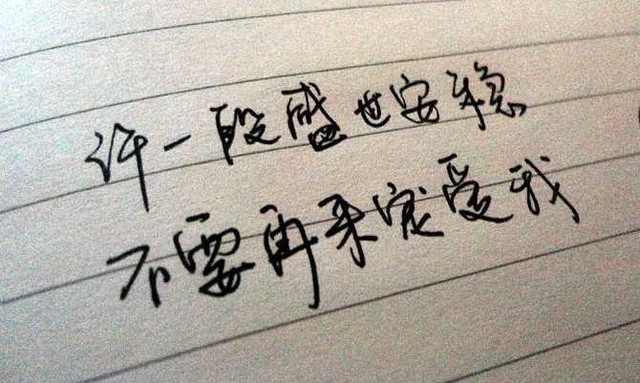 许一段盛世安稳
不要再来宠爱我